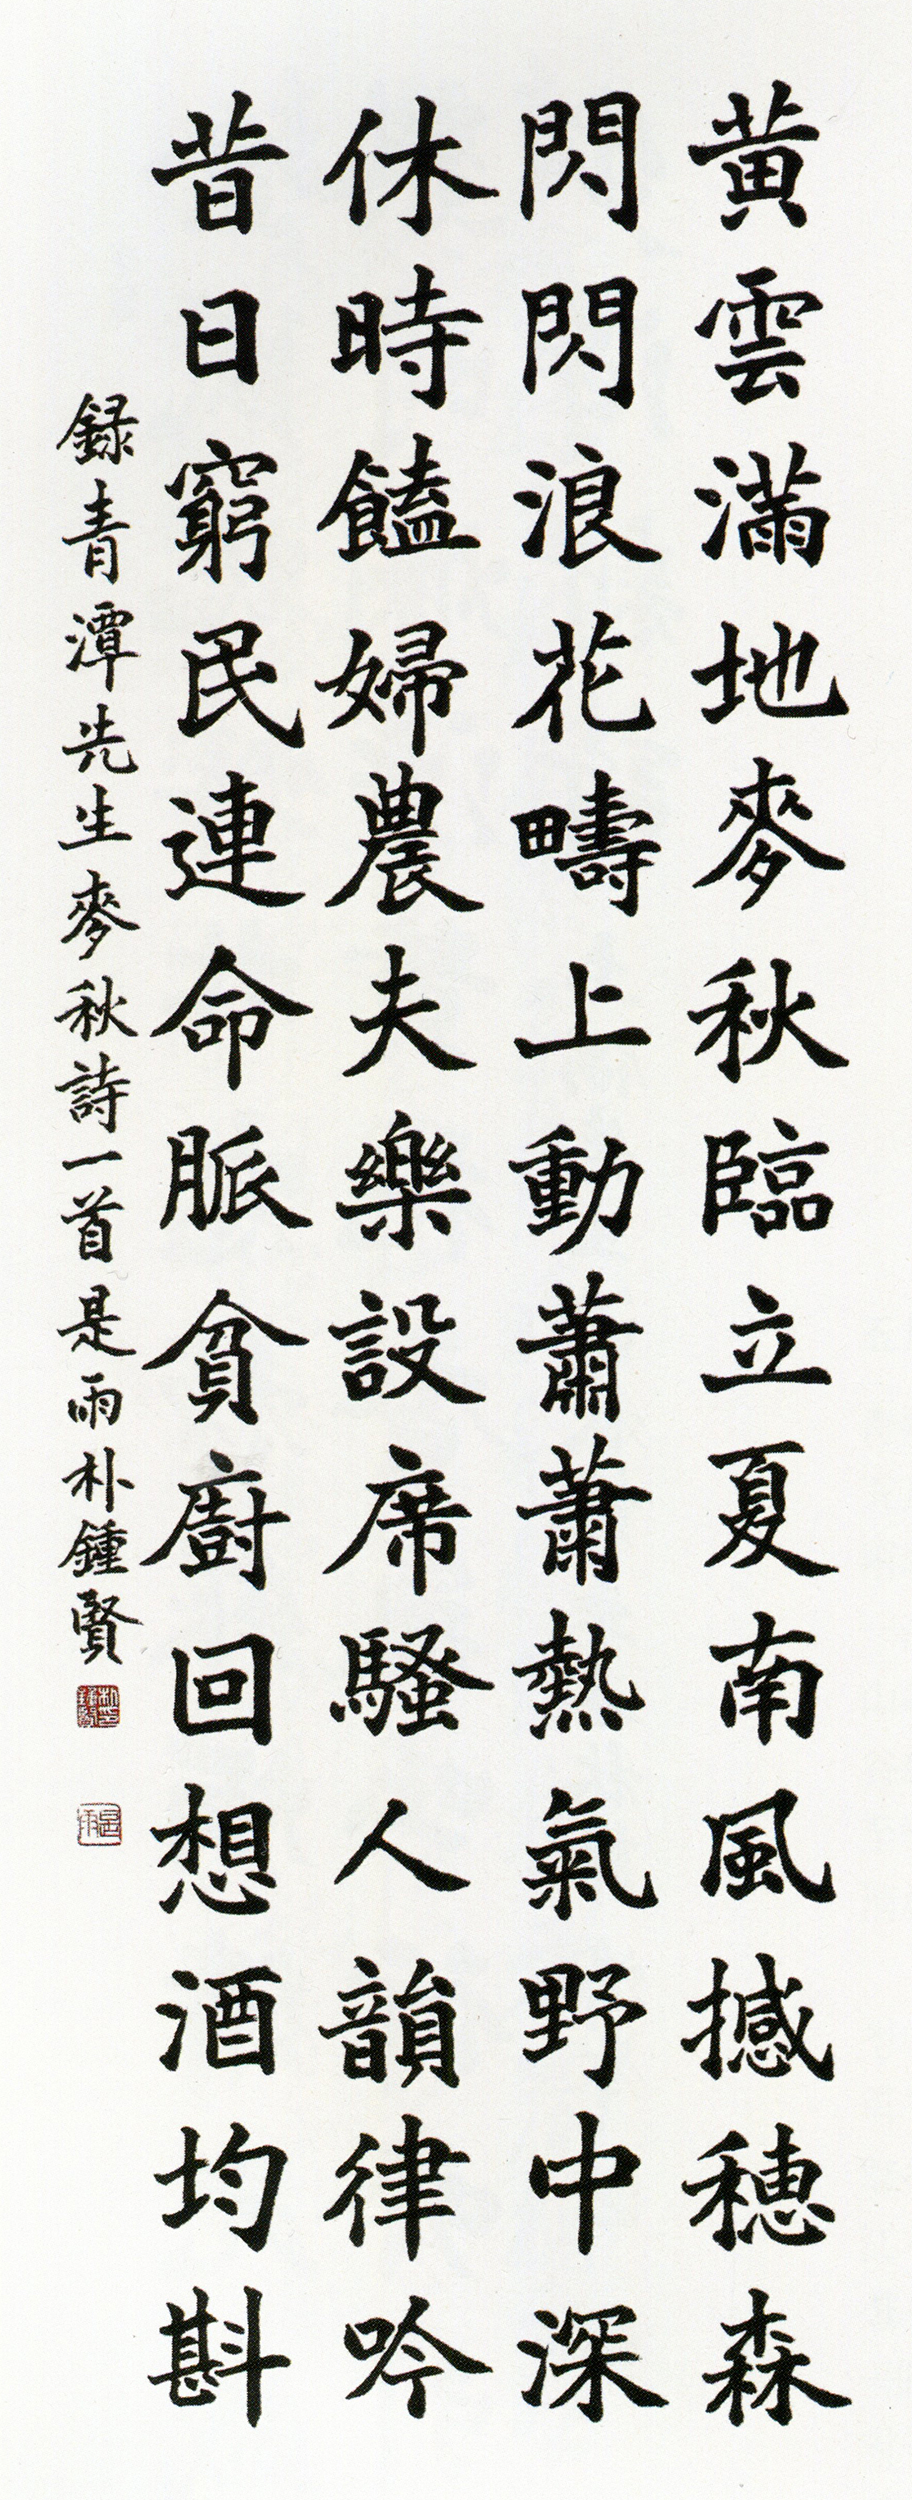 黄雲滿地麥秋臨立夏南風撼穗森
閃閃浪花疇上動蕭蕭熱氣野中深
休時饁婦農夫樂設席騷人韻律吟
昔日窮民連命脈貧廚回想酒均斟
録青潭先生麥秋詩一首是雨朴鍾賢